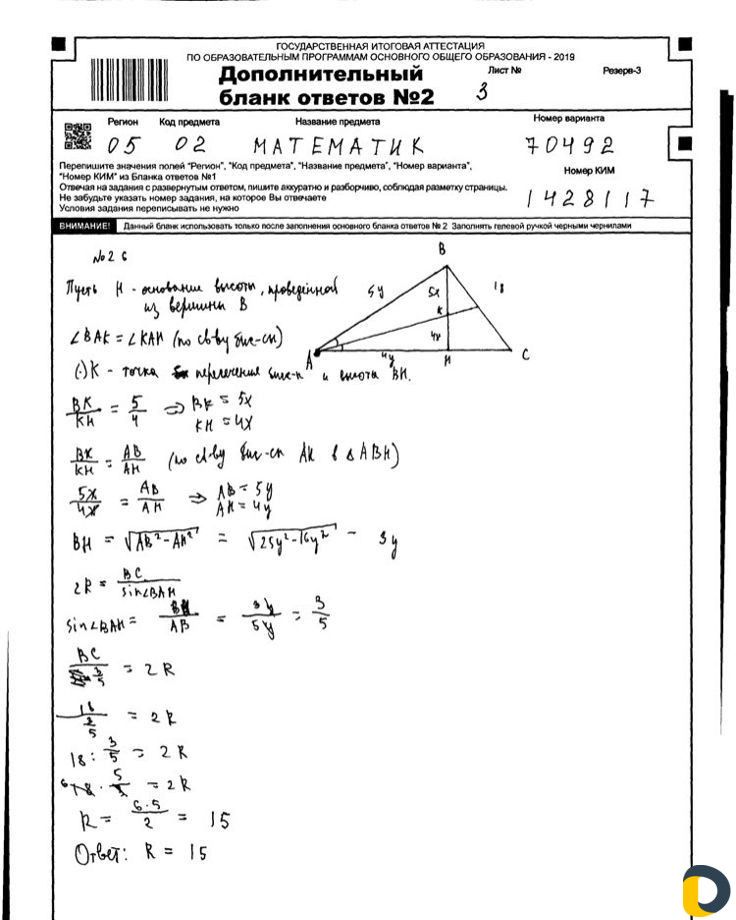 ГОСУДАРСТВЕННАЯ ИТОГОВАЯ АТТЕСТАЦИЯ
ПО ОБРАЗОВАТЕЛЬНЫМ ПРОГРАММАМ ОСНОВНОГО ОБЩЕГО ОБРАЗОВАНИЯ - 2019
Дополнительный
бланк ответов №2
Лист №
3
Резерв-3
Регион Код предмета Название предмета Номер варианта
05 02 МАТЕМАТИК 70492
Перепишите значения полей "Регион", "Код предмета", "Название предмета", "Номер варианта",
"Номер КИМ" из Бланка ответов №1
Номер КИМ
Отвечая на задания с развернутым ответом, пишите аккуратно и разборчиво, соблюдая разметку страницы.
Не забудьте указать номер задания, на которое Вы отвечаете
Условия задания переписывать не нужно
1428117
ВНИМАНИЕ! Данный бланк использовать только после заполнения основного бланка ответов № 2 Заполнять гелевой ручкой черными чернилами
№26
B
5y 5x 18
K
4x
A 4y H C
Пусть H - основание высоты, проведённой
из вершины B
∠BAK = ∠KAH (по св-ву бис-сы)
(·)K - точка пересечения бисс-ы и высоты BH.
BK/KH = 5/4 ⇒ BK = 5x
KH = 4x
BK/KH = AB/AH (по св-ву бис-сы AK в ΔABH)
5x/4x = AB/AH ⇒ AB = 5y
AH = 4y
BH = √AB²-AH² = √25y²-16y² = 3y
2R = BC/sin∠BAH
sin∠BAH = BH/AB = 3y/5y = 3/5
BC/(3/5) = 2R
18/(3/5) = 2R
18 : 3/5 = 2R
6 18 · 5/3 = 2R
R = 6·5/2 = 15
Ответ: R = 15